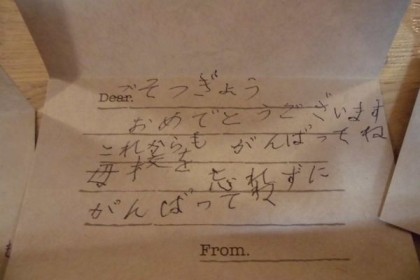 Dear. ごそつぎょう
おめでとうございます
これからも がんばってね
母校を 忘れずに
がんばってね
From.